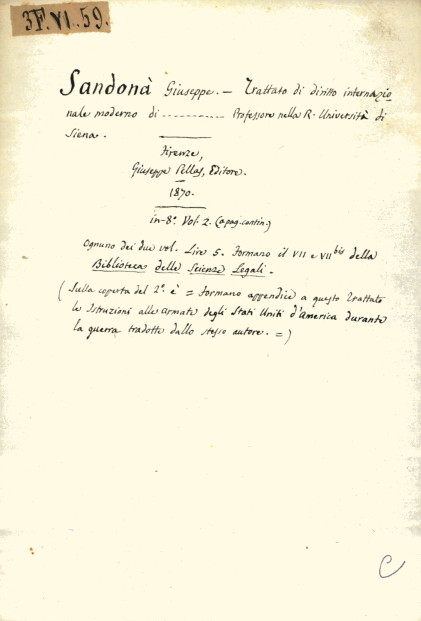 3F.VI.59.
Sandonà Giuseppe. — Trattato di diritto internazio
nale moderno di ............ Professore nella R. Università di
Siena.
Firenze,
Giuseppe Pellas, Editore.
1870.
in-8º. Vol. 2. (a pag. contin.)
Ognuno dei due vol. Lire 5. Formano il VII e VII bis della
Biblioteca delle Scienze Legali.
(Sulla coperta del 2º. è = Formano appendice a questo Trattato
le Istruzioni alle armate degli Stati Uniti d'America durante
la guerra tradotte dallo stesso autore. =)
C